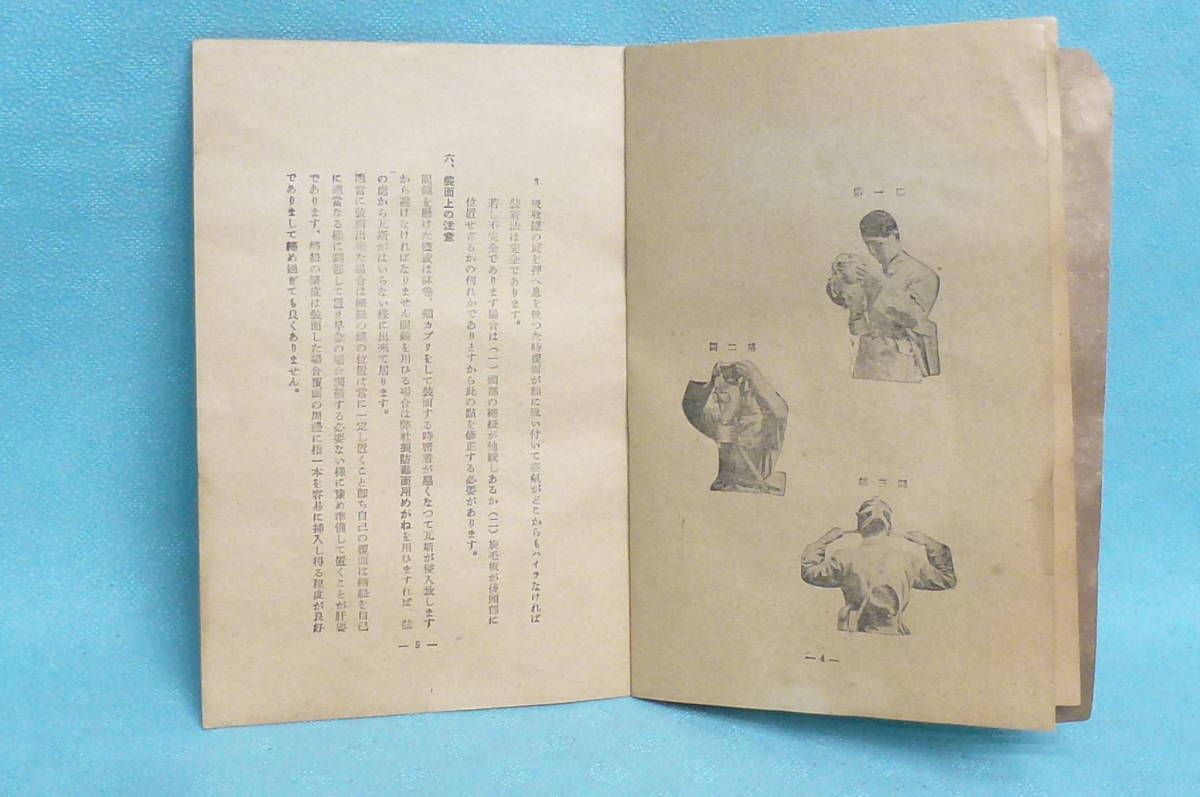 第一圖
第二圖
第三圖
—4—
3 吸收罐の底を押へ息を吸つた時覆面が顔に吸い付いて空氣がどこからもハイラなければ
裝着法は完全であります。
若し不完全であります場合は(一)頭部の締紐が弛緩しあるか(二)旋毛板が後頭部に
位置せざるかの何れかでありますから此の點を修正する必要があります。
六、裝面上の注意
眼鏡を懸けた儘或は鉢卷、頰カブリをして裝面する時密着が惡くなつて瓦斯が侵入致します
から避けなければなりません眼鏡を用ひる場合は弊社製防毒面用めがねを用ひますれば、弦
の處から瓦斯がはいらない樣に出來て居ります。
適當に裝面出來た場合は締紐の鐶の位置は常に一定し置くこと卽ち自己の覆面は締紐を自己
に適當なる樣に調節して置き早急の場合調節する必要ない樣に豫め準備して置くことが肝要
であります、締紐の緊度は裝面した場合覆面の周邊に指一本を容易に挿入し得る程度が良好
でありまして締め過ぎても良くありません。
—5—